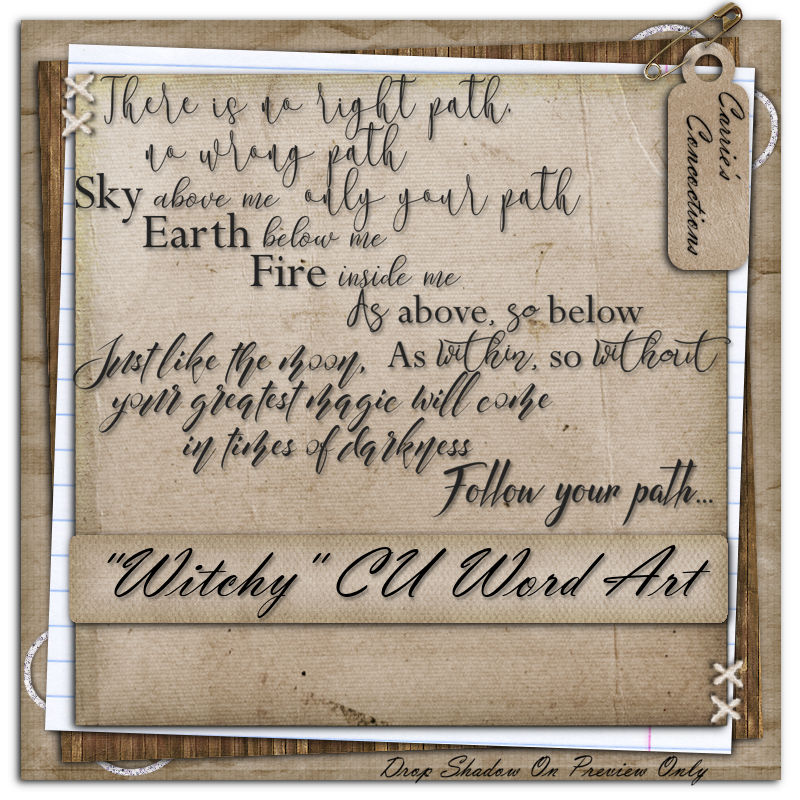 There is no right path.
no wrong path
only your path
Sky above me
Earth below me
Fire inside me
As above, so below
As within, so without
Just like the moon,
your greatest magic will come
in times of darkness
Follow your path...
"Witchy" CU Word Art
Carrie's
Concoctions
Drop Shadow On Preview Only